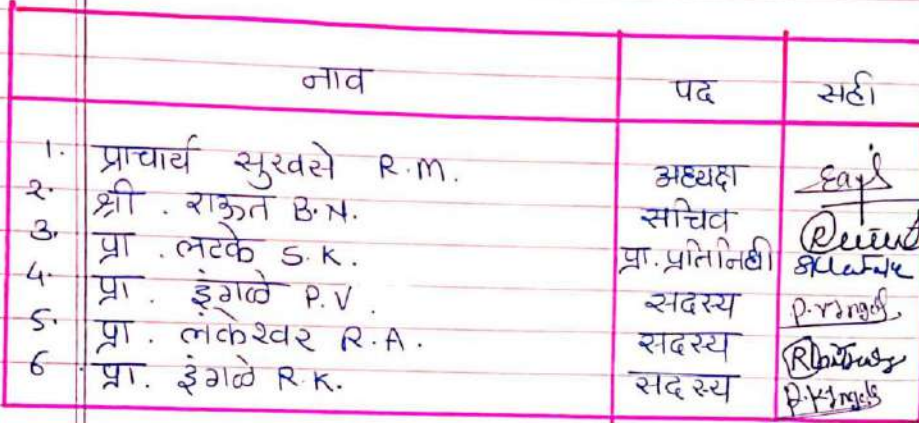 नाव पद सही
1. प्राचार्य सुरवसे R.M. अध्यक्ष
2. श्री. राऊत B.N. सचिव
3. प्रा. लटके S.K. प्रा. प्रतिनिधी
4. प्रा. इंगळे P.V. सदस्य P.V.Ingole
5. प्रा. लंकेश्वर R.A. सदस्य
6 प्रा. इंगळे R.K. सदस्य